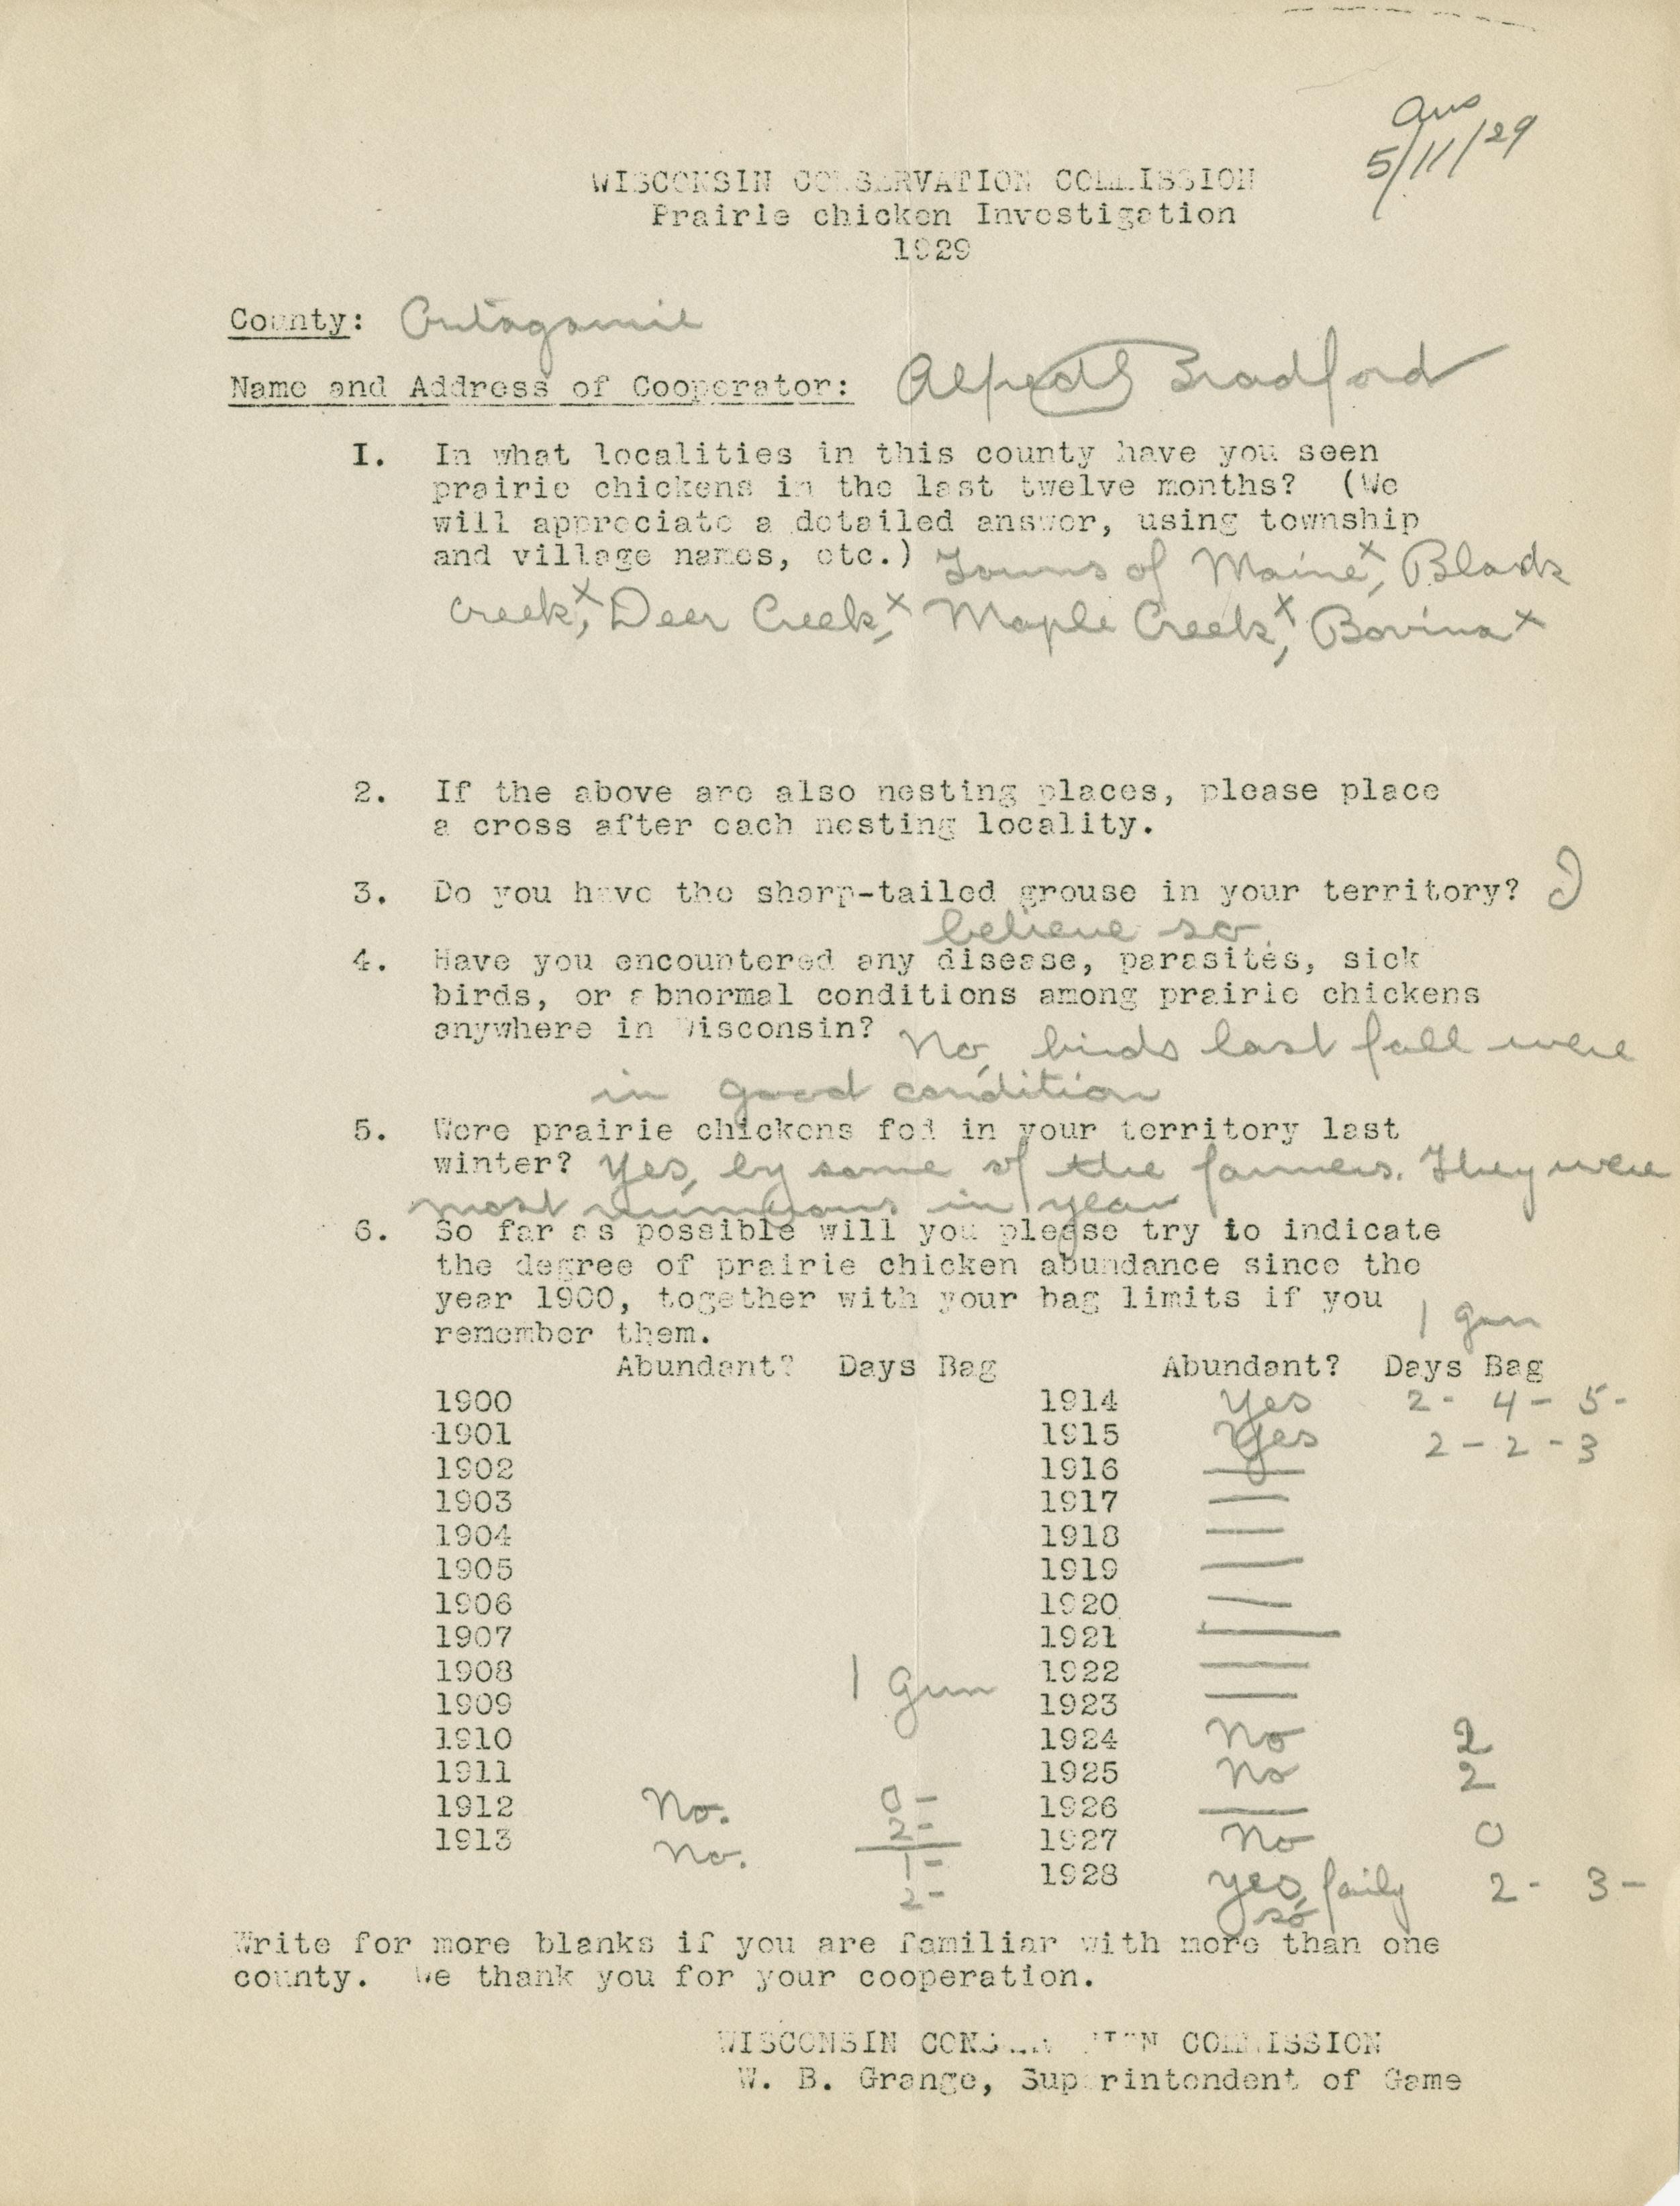 Ans
5/11/29
WISCONSIN CONSERVATION COMMISSION
Prairie chicken Investigation
1929
County: Outagamie
Name and Address of Cooperator: Alfred S Bradford
I. In what localities in this county have you seen
prairie chickens in the last twelve months? (We
will appreciate a detailed answer, using township
and village names, etc.) Towns of Maine x, Black
Creek x, Deer Creek x, Maple Creek x, Bovina x
2. If the above are also nesting places, please place
a cross after each nesting locality.
3. Do you have the sharp-tailed grouse in your territory? I
believe so.
4. Have you encountered any disease, parasites, sick
birds, or abnormal conditions among prairie chickens
anywhere in Wisconsin? No, birds last fall were
in good condition
5. Were prairie chickens fed in your territory last
winter? Yes, by some of the farmers. They were
most numerous in year
6. So far as possible will you please try to indicate
the degree of prairie chicken abundance since the
year 1900, together with your bag limits if you
remember them. 1 gun
Abundant? Days Bag Abundant? Days Bag
1900 1914 Yes 2 - 4 - 5 -
1901 1915 Yes 2 - 2 - 3
1902 1916 —
1903 1917 —
1904 1918 —
1905 1919 —
1906 1920 —
1907 1921 —
1908 1 Gun 1922 —
1909 1923 —
1910 1924 No 2
1911 1925 No 2
1912 No. 0 - 1926 —
2 -
1913 No. 1 - 1927 No 0
2 - 1928 yes, fairly 2 - 3 -
so
Write for more blanks if you are familiar with more than one
county. We thank you for your cooperation.
WISCONSIN CONSERVATION COMMISSION
W. B. Grange, Superintendent of Game